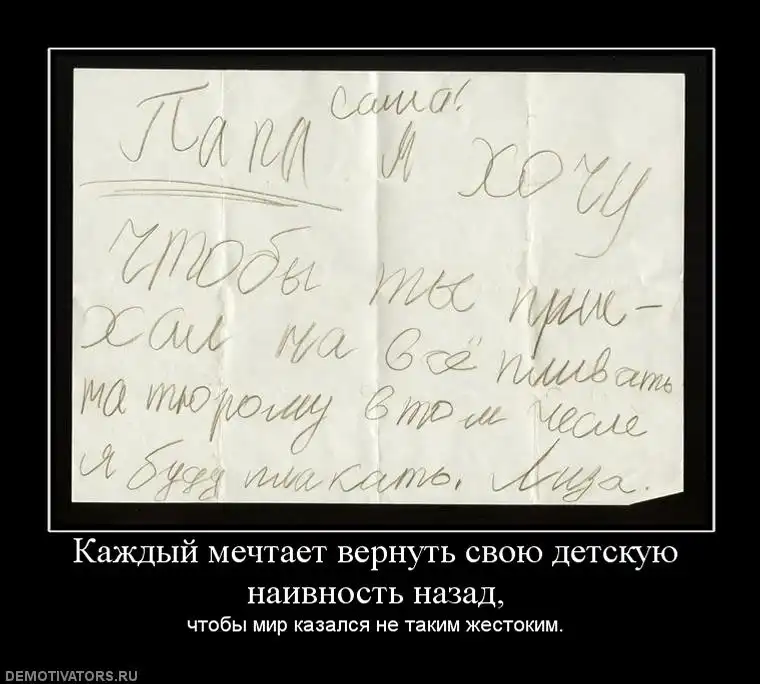 саша!
Папа я хочу
чтобы ты прие-
хал на всё пливать
на тюрому в том числе
я буду плакать. Лиза.
Каждый мечтает вернуть свою детскую
наивность назад,
чтобы мир казался не таким жестоким.
DEMOTIVATORS.RU